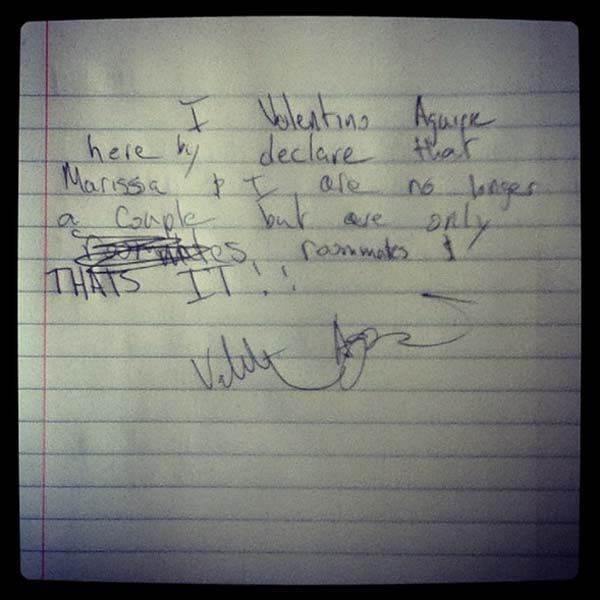 I Valentino Aguirre
here by declare that
Marissa & I are no longer
a couple but are only
roommates roommates &
THATS IT!!